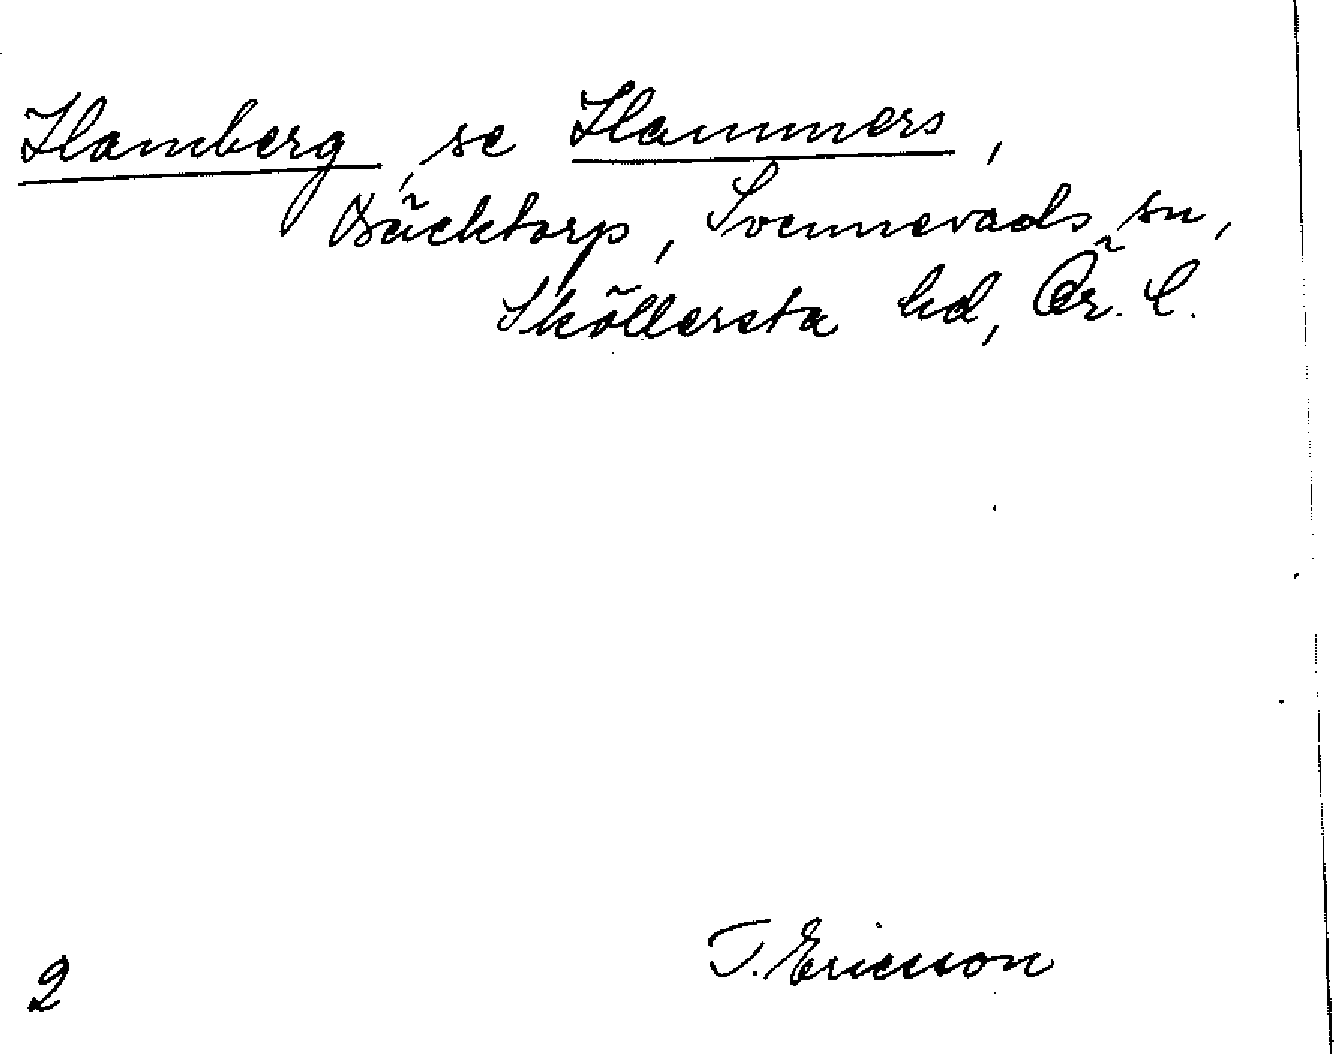 Hamberg, se Hammers,
Bäcktorp, Svennevads sn,
Sköllersta hd, Ör. l.
T. Ericsson
2